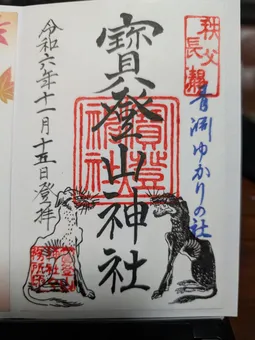 秩父
長瀞
青淵ゆかりの社
寶登山神社
寶登山神社
令和六年十一月十五日登拝